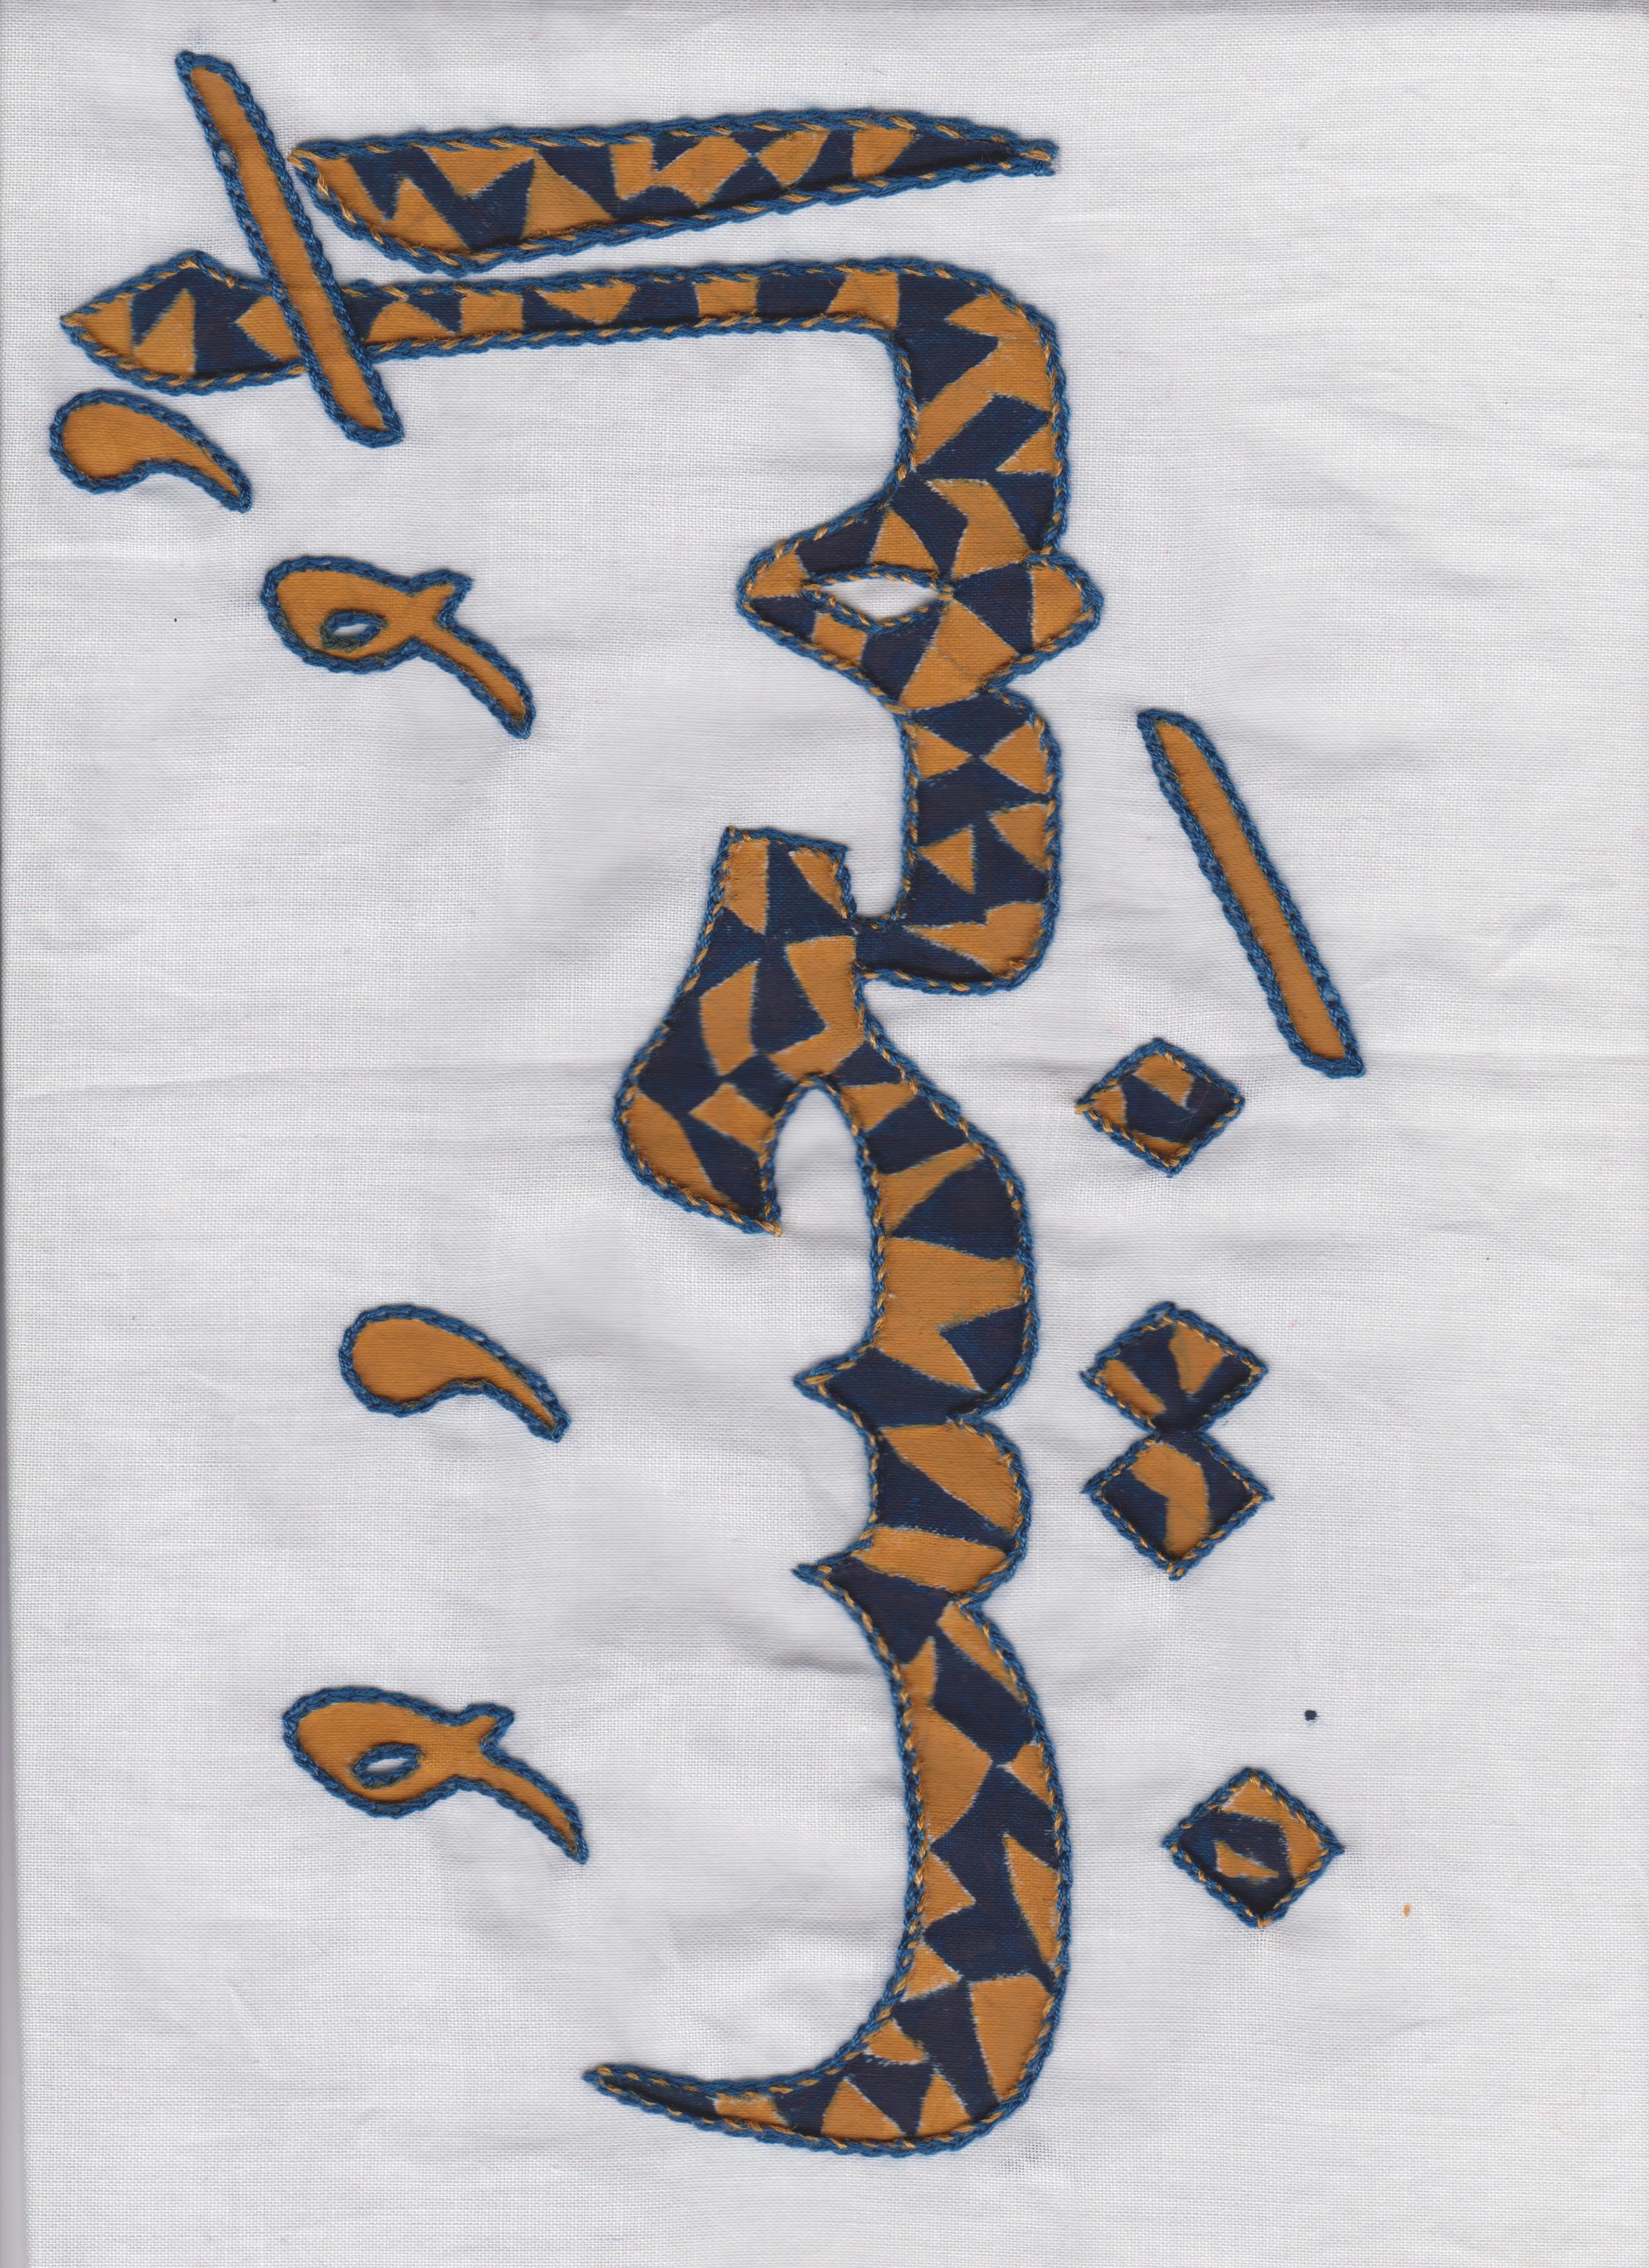 اَلْمُجِيْبُ